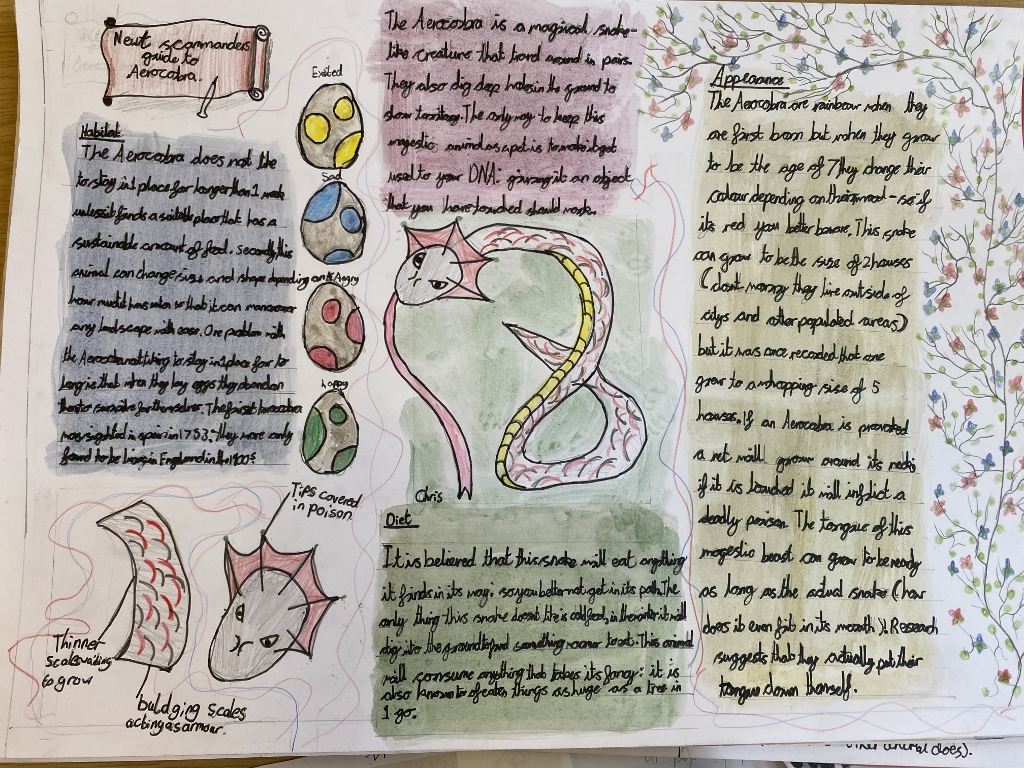 Newt scammanders
guide to
Aerocobra.
Habitat
The Aerocobra does not like
to stay in 1 place for longer than 1 week
unless it finds a suitable place that has a
sustainable amount of food. Secondly, this
animal can change size and shape depending on
how much it has eaten so that it can manoever
any landscape with ease. One problem with
the Aerocobra not liking to stay in 1 place for to
long is that when they lay eggs they abandon
them to survive for themselves. The first Aerocobra
was sighted in spain in 1753. They were only
found to be living in England in the 1900s.
Exited
Sad
Angry
happy
The Aerocobra is a magical snake-
like creature that hord around in pairs.
They also dig deep holes in the ground to
show territory. The only way to keep this
magestic animal as a pet is to make it get
used to your DNA: giving it an object
that you have touched should work.
Chris
Diet
It is beleived that this snake will eat anything
it finds in its way; so you better not get in its path. The
only thing this snake doesnt like is cold food, in the winter it will
dig into the ground to find something warmer to eat. This animal
will consume anything that takes its fancy: it is
also known to of eaten things as huge as a tree in
1 go.
Appearance
The Aerocobra are rainbow when they
are first born but when they grow
to be the age of 7 they change their
colour depending on their mood - so if
its red you better beware. This snake
can grow to be the size of 2 houses
(dont worry they live outside of
citys and other populated areas)
but it was once recoded that one
grew to a whopping size of 5
houses. If an Aerocobra is provoked
a net will grow around its neck;
if it is touched it will inflict a
deadly poison. The tongue of this
magestic beast can grow to be nearly
as long as the actual snake (how
does it even fit in its mouth). Research
suggests that they actually put their
tongue down themself.
Tips covered
in poison
Thinner
scales waiting
to grow
buldging scales
acting as armour.
other animal does).